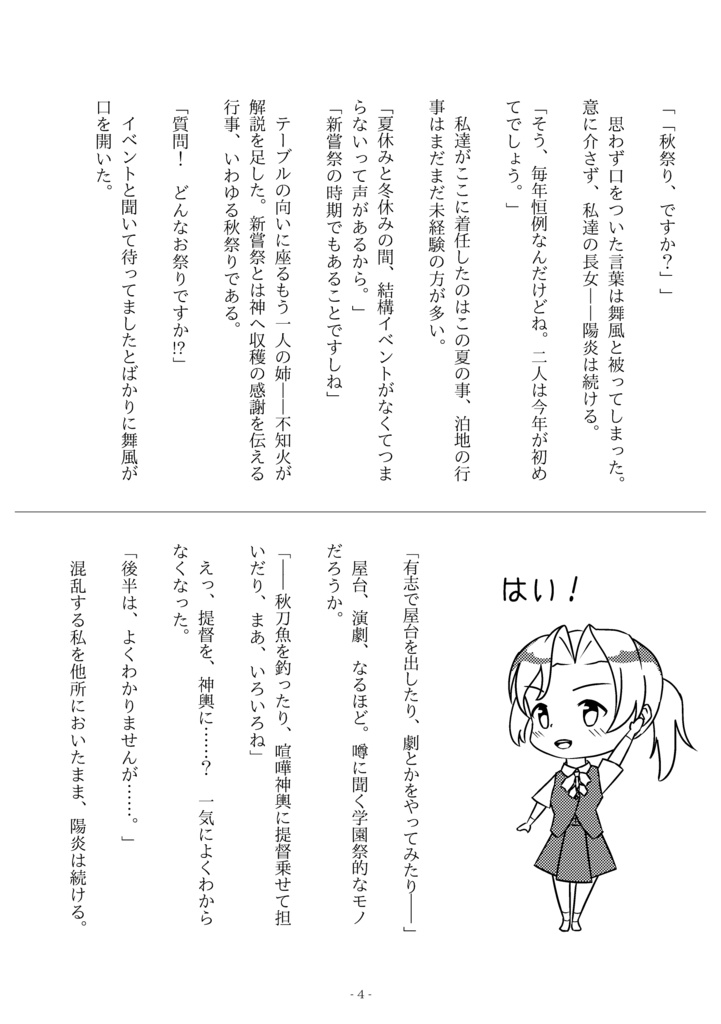 「「秋祭り、ですか？」」
　思わず口をついた言葉は舞風と被ってしまった。
意に介さず、私達の長女――陽炎は続ける。
「そう、毎年恒例なんだけどね。二人は今年が初め
てでしょう。」
　私達がここに着任したのはこの夏の事、泊地の行
事はまだまだ未経験の方が多い。
「夏休みと冬休みの間、結構イベントがなくてつま
らないって声があるから。」
「新嘗祭の時期でもあることですしね」
　テーブルの向いに座るもう一人の姉――不知火が
解説を足した。新嘗祭とは神へ収穫の感謝を伝える
行事、いわゆる秋祭りである。
「質問！　どんなお祭りですか!?」
　イベントと聞いて待ってましたとばかりに舞風が
口を開いた。
はい！
「有志で屋台を出したり、劇とかをやってみたり――」
　屋台、演劇、なるほど。噂に聞く学園祭的なモノ
だろうか。
「――秋刀魚を釣ったり、喧嘩神輿に提督乗せて担
いだり、まあ、いろいろね」
　えっ、提督を、神輿に……？　一気によくわから
なくなった。
「後半は、よくわかりませんが……。」
　混乱する私を他所においたまま、陽炎は続ける。
- 4 -